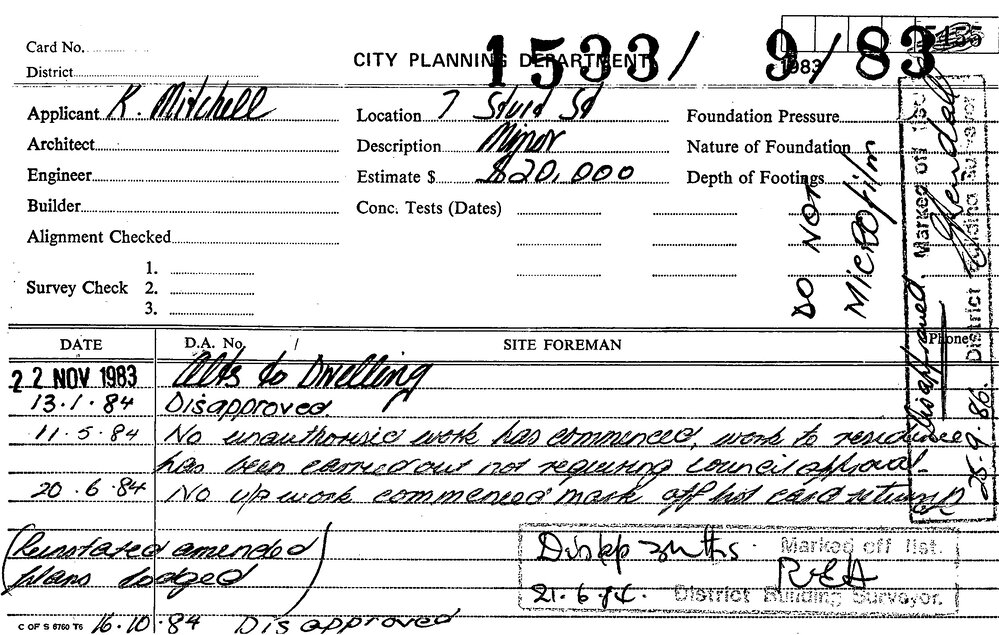 Card No.
District
CITY PLANNING DEPARTMENT
1533/ 9/83
1983
Applicant K. Mitchell
Location 7
Foundation Pressure
Architect
Description Minor
Nature of Foundation
Engineer
Estimate $ $20,000
Depth of Footings
Builder
Conc. Tests (Dates)
Alignment Checked
Survey Check
1.
2.
3.
DO NOT
MICROfilm
Disapproved Marked off list
District Building Surveyor
25.9.86.
DATE
D.A. No. /
SITE FOREMAN
Phone
22 NOV 1983 Alts to Dwelling
13.1.84 Disapproved.
11.5.84 No unauthorisic work has commenced, work to residence
has been carried out not requiring council approval.
20.6.84 No up work commenced mark off list card return
(Reinstated amended
plans lodged)
Marked off list.
21.6.84. District Building Surveyor.
C OF S 6760 T6 16.10.84 Disapproved